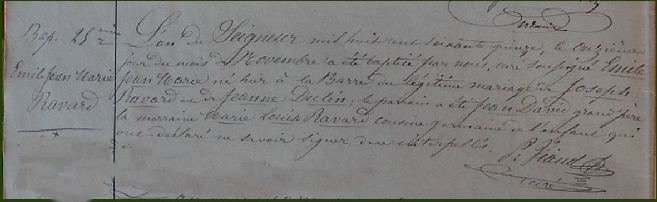 Bap. 25me
Emile Jean Marie
Ravard
L'an du Seigneur mil huit cent soixante quinze, le onzième
jour du mois de Novembre a été baptisé par nous, curé soussigné Emile
Jean Marie né hier à la Barre du légitime mariage de Joseph
Ravard et de Jeanne Dulin; le parrain a été Jean David grand père
la marraine Marie Louise Ravard cousine germaine de l'enfant qui
ont déclaré ne savoir signer de ce interpellés.
curé